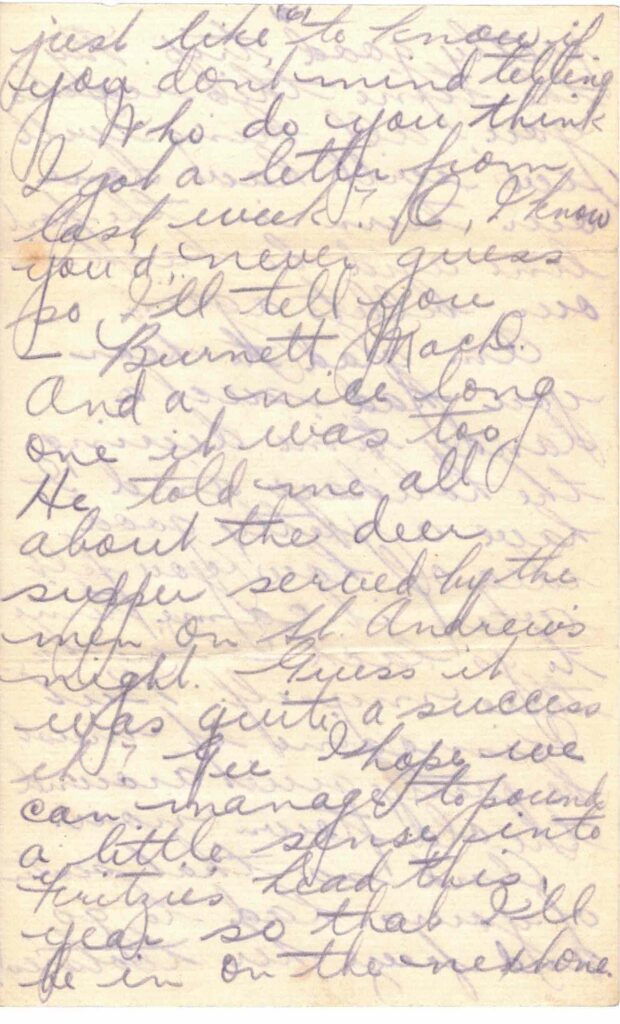 (6)
just like to know if
you don't mind telling
Who do you think
I got a letter from
last week? O, I know
you'd never guess
so I'll tell you
— Burnett MacD.
And a nice long
one it was too.
He told me all
about the deer
supper served by the
men on St. Andrew's
night. Guess it
was quite a success
eh? Gee I hope we
can manage to pound
a little sense into
Fritzie's head this
year so that I'll
be in on the next one.